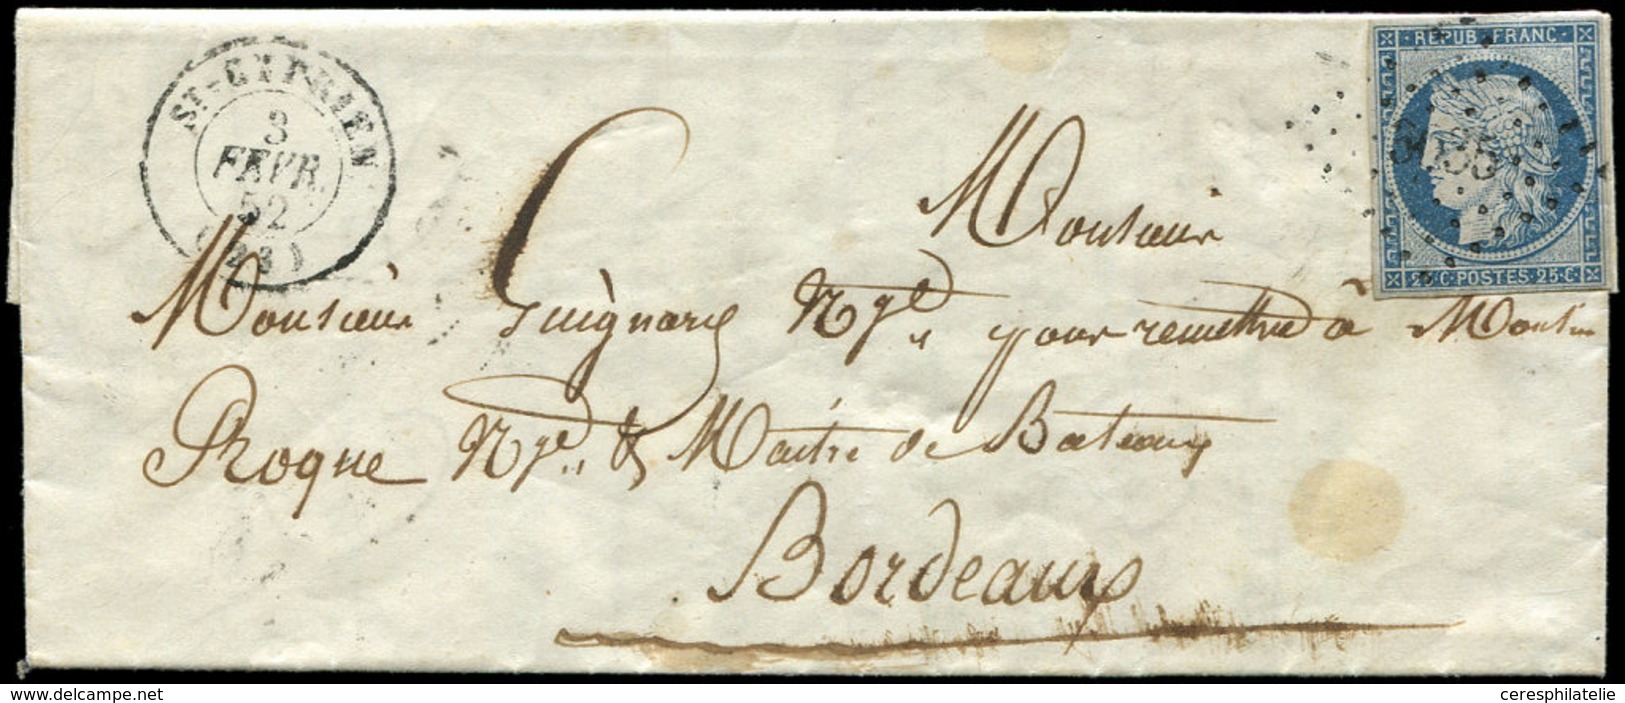 ST-CYPRIEN
3
FEVR.
52
(23)
REPUB. FRANC.
25 C. POSTES. 25 C.
Monsieur
Monsieur Guignard Nge pour remettre à
Roque Nge & Maitre de Bateaux
Bordeaux
delcampe.net
ceresphilatelie